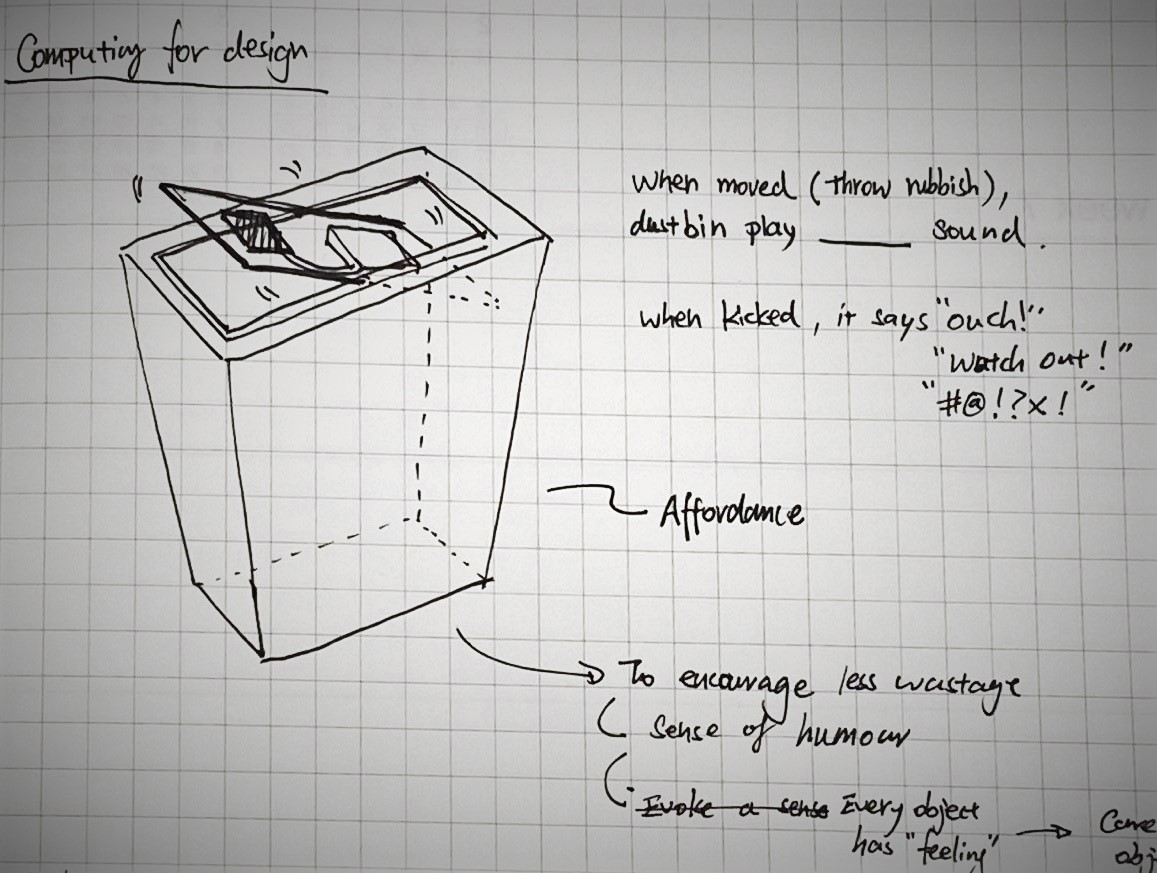 Computing for design
When moved (throw rubbish),
dustbin play ______ sound.
when kicked, it says "ouch!"
"Watch out!"
"#@!?x!"
Affordance
To encourage less wastage
sense of humour
Evoke a sense Every object
has "feeling" →